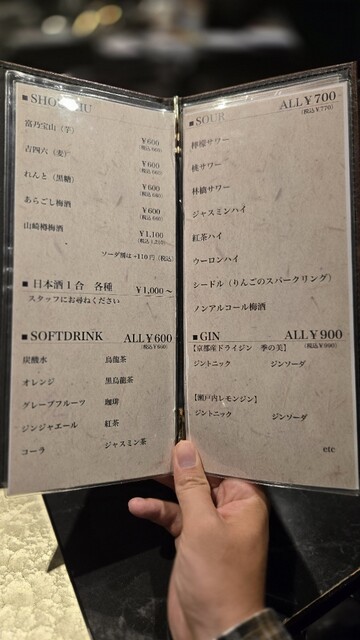 ■ SHOCHU
富乃宝山（芋）
¥600
(税込660)
吉四六（麦）
¥600
(税込660)
れんと（黒糖）
¥600
(税込660)
あらごし梅酒
¥600
(税込660)
山崎樽梅酒
¥1,100
(税込1,210)
ソーダ割は+110円（税込）
■ 日本酒１合　各種　¥1,000～
スタッフにお尋ねください
■ SOFTDRINK　ALL¥600
(税込¥660)
炭酸水　烏龍茶
オレンジ　黒烏龍茶
グレープフルーツ　珈琲
ジンジャエール　紅茶
コーラ　ジャスミン茶
■ SOUR　ALL¥700
(税込¥770)
檸檬サワー
桃サワー
林檎サワー
ジャスミンハイ
紅茶ハイ
ウーロンハイ
シードル（りんごのスパークリング）
ノンアルコール梅酒
■ GIN　ALL¥900
(税込¥990)
【京都産ドライジン　季の美】
ジントニック　ジンソーダ
【瀬戸内レモンジン】
ジントニック　ジンソーダ
etc